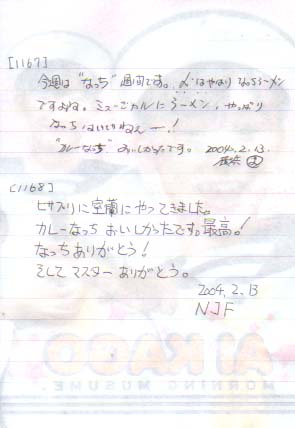 [1167]
今週は"なっち"週間です。〆はやはりなっちラーメン
ですよね。ミュージカルにラーメン、やっぱり
なっちはいいわねぇー!
"カレーなっち"おいしかったです。2004.2.13.
横浜
[1168]
ヒサブリに室蘭にやってきました。
カレーなっちおいしかったです。最高。!
なっちありがとう!
そしてマスターありがとう。
2004.2.13
NJF
AI KAGO
MORNING MUSUME.